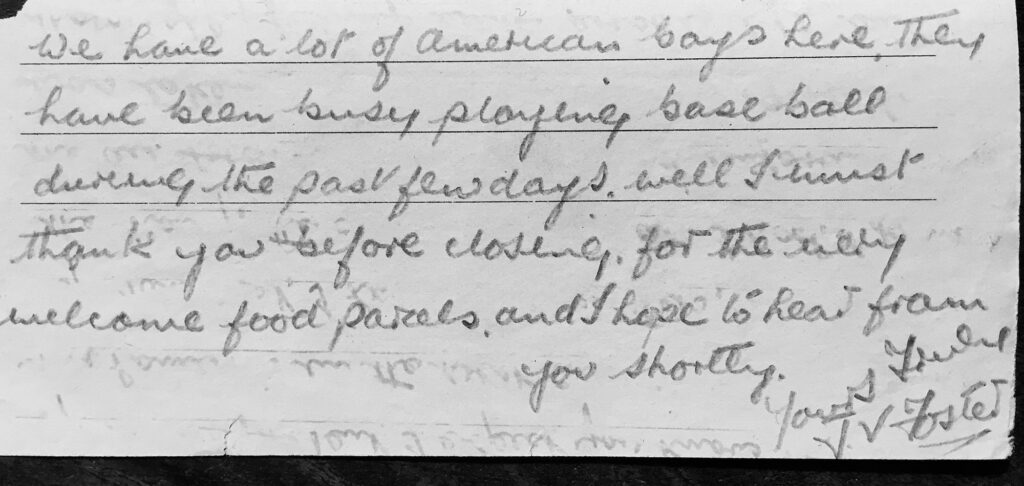 We have a lot of American boys here, they
have been busy playing base ball
during the past few days. well I must
thank you before closing. for the very
welcome food parcels, and I hope to hear from
you shortly.
Yours Truly
J V Foster